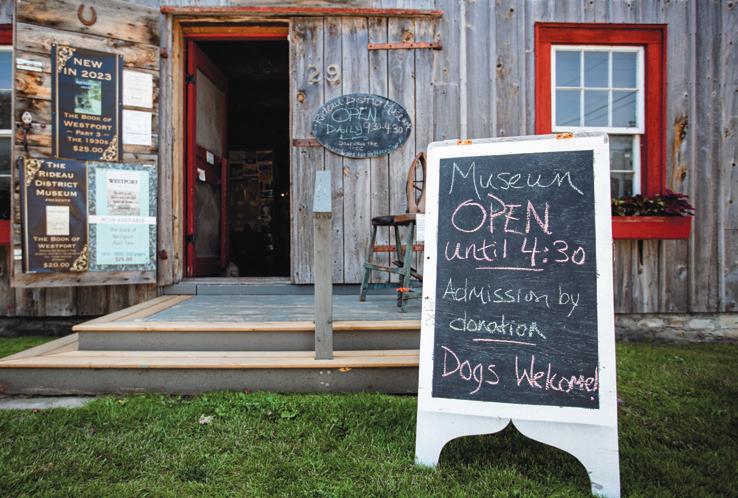 NEW
IN 2023
THE BOOK OF
WESTPORT
PART 3
THE 1930s
$25.00
THE
RIDEAU
DISTRICT
MUSEUM
PRESENTS
THE BOOK OF
WESTPORT
$20.00
WESTPORT
NOW AVAILABLE
the book of
Westport
Part Two
$25.00
29
RIDEAU DISTRICT MUSEUM
OPEN
DAILY 9:30-4:30
Museum
OPEN
until 4:30
Admission by
donation
Dogs Welcome!